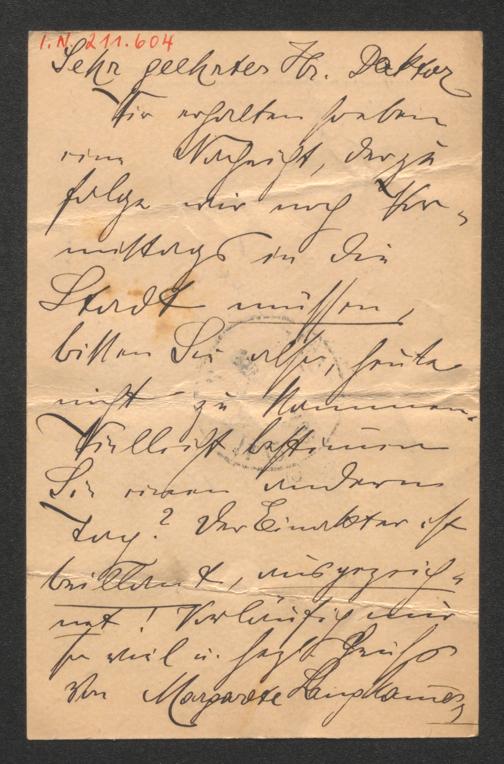 I.N. 211.604
Sehr geehrter Hr. Doktor
Wir erhalten soeben
eine Nachricht, derzu
folge wir noch Vor-
mittags in die
Stadt müssen,
bitten Sie also, heute
nicht zu kommen.
Vielleicht bestimmen
Sie einen anderen
Tag? Der Einakter ist
brillant, ausgezeich-
net! Vorläufig nur
so viel u. herzl Grüße
von Margarete